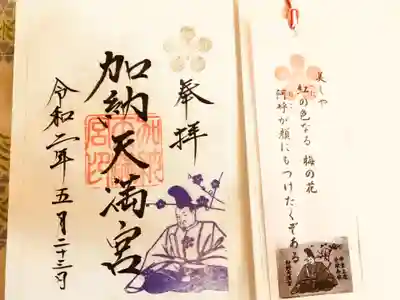 奉拝
加納天満宮
令和二年五月二十三日
美しや
紅の色なる 梅の花
阿呼が顔にもつけたくぞある